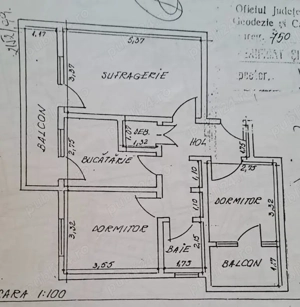 Oficiul Județe
Geodezie și C
750
1,17
5,37
3,37
SUFRAGERIE
BALCON
DEB.
1,07
1,32
HOL
2,75
BUCĂTĂRIE
1,35
2,75
1,10
1,10
DORMITOR
3,32
3,32
DORMITOR
BAIE
2,15
3,55
1,73
BALCON
1,17
CARA 1:100